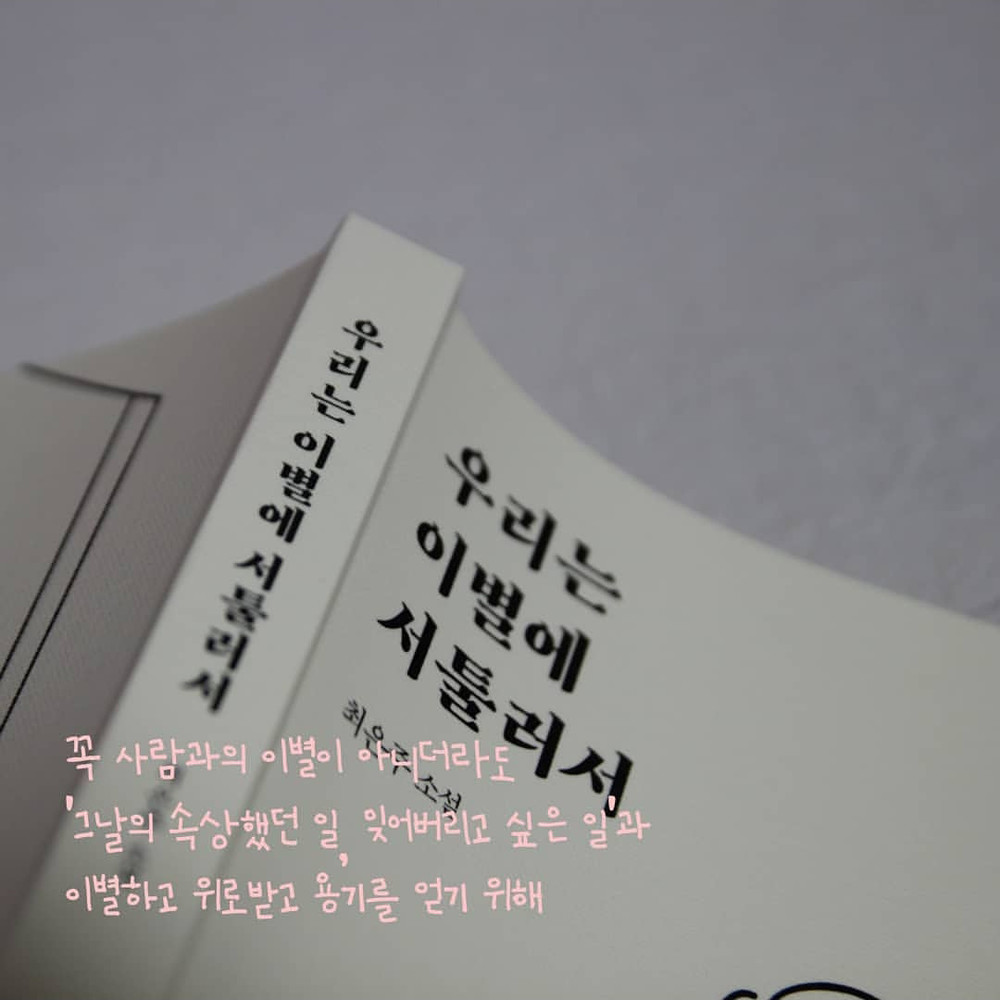 우리는 이별에 서툴러서
우리는
이별에
서툴러서
최은주 소설
꼭 사람과의 이별이 아니더라도
'그날의 속상했던 일, 잊어버리고 싶은 일'과
이별하고 위로받고 용기를 얻기 위해